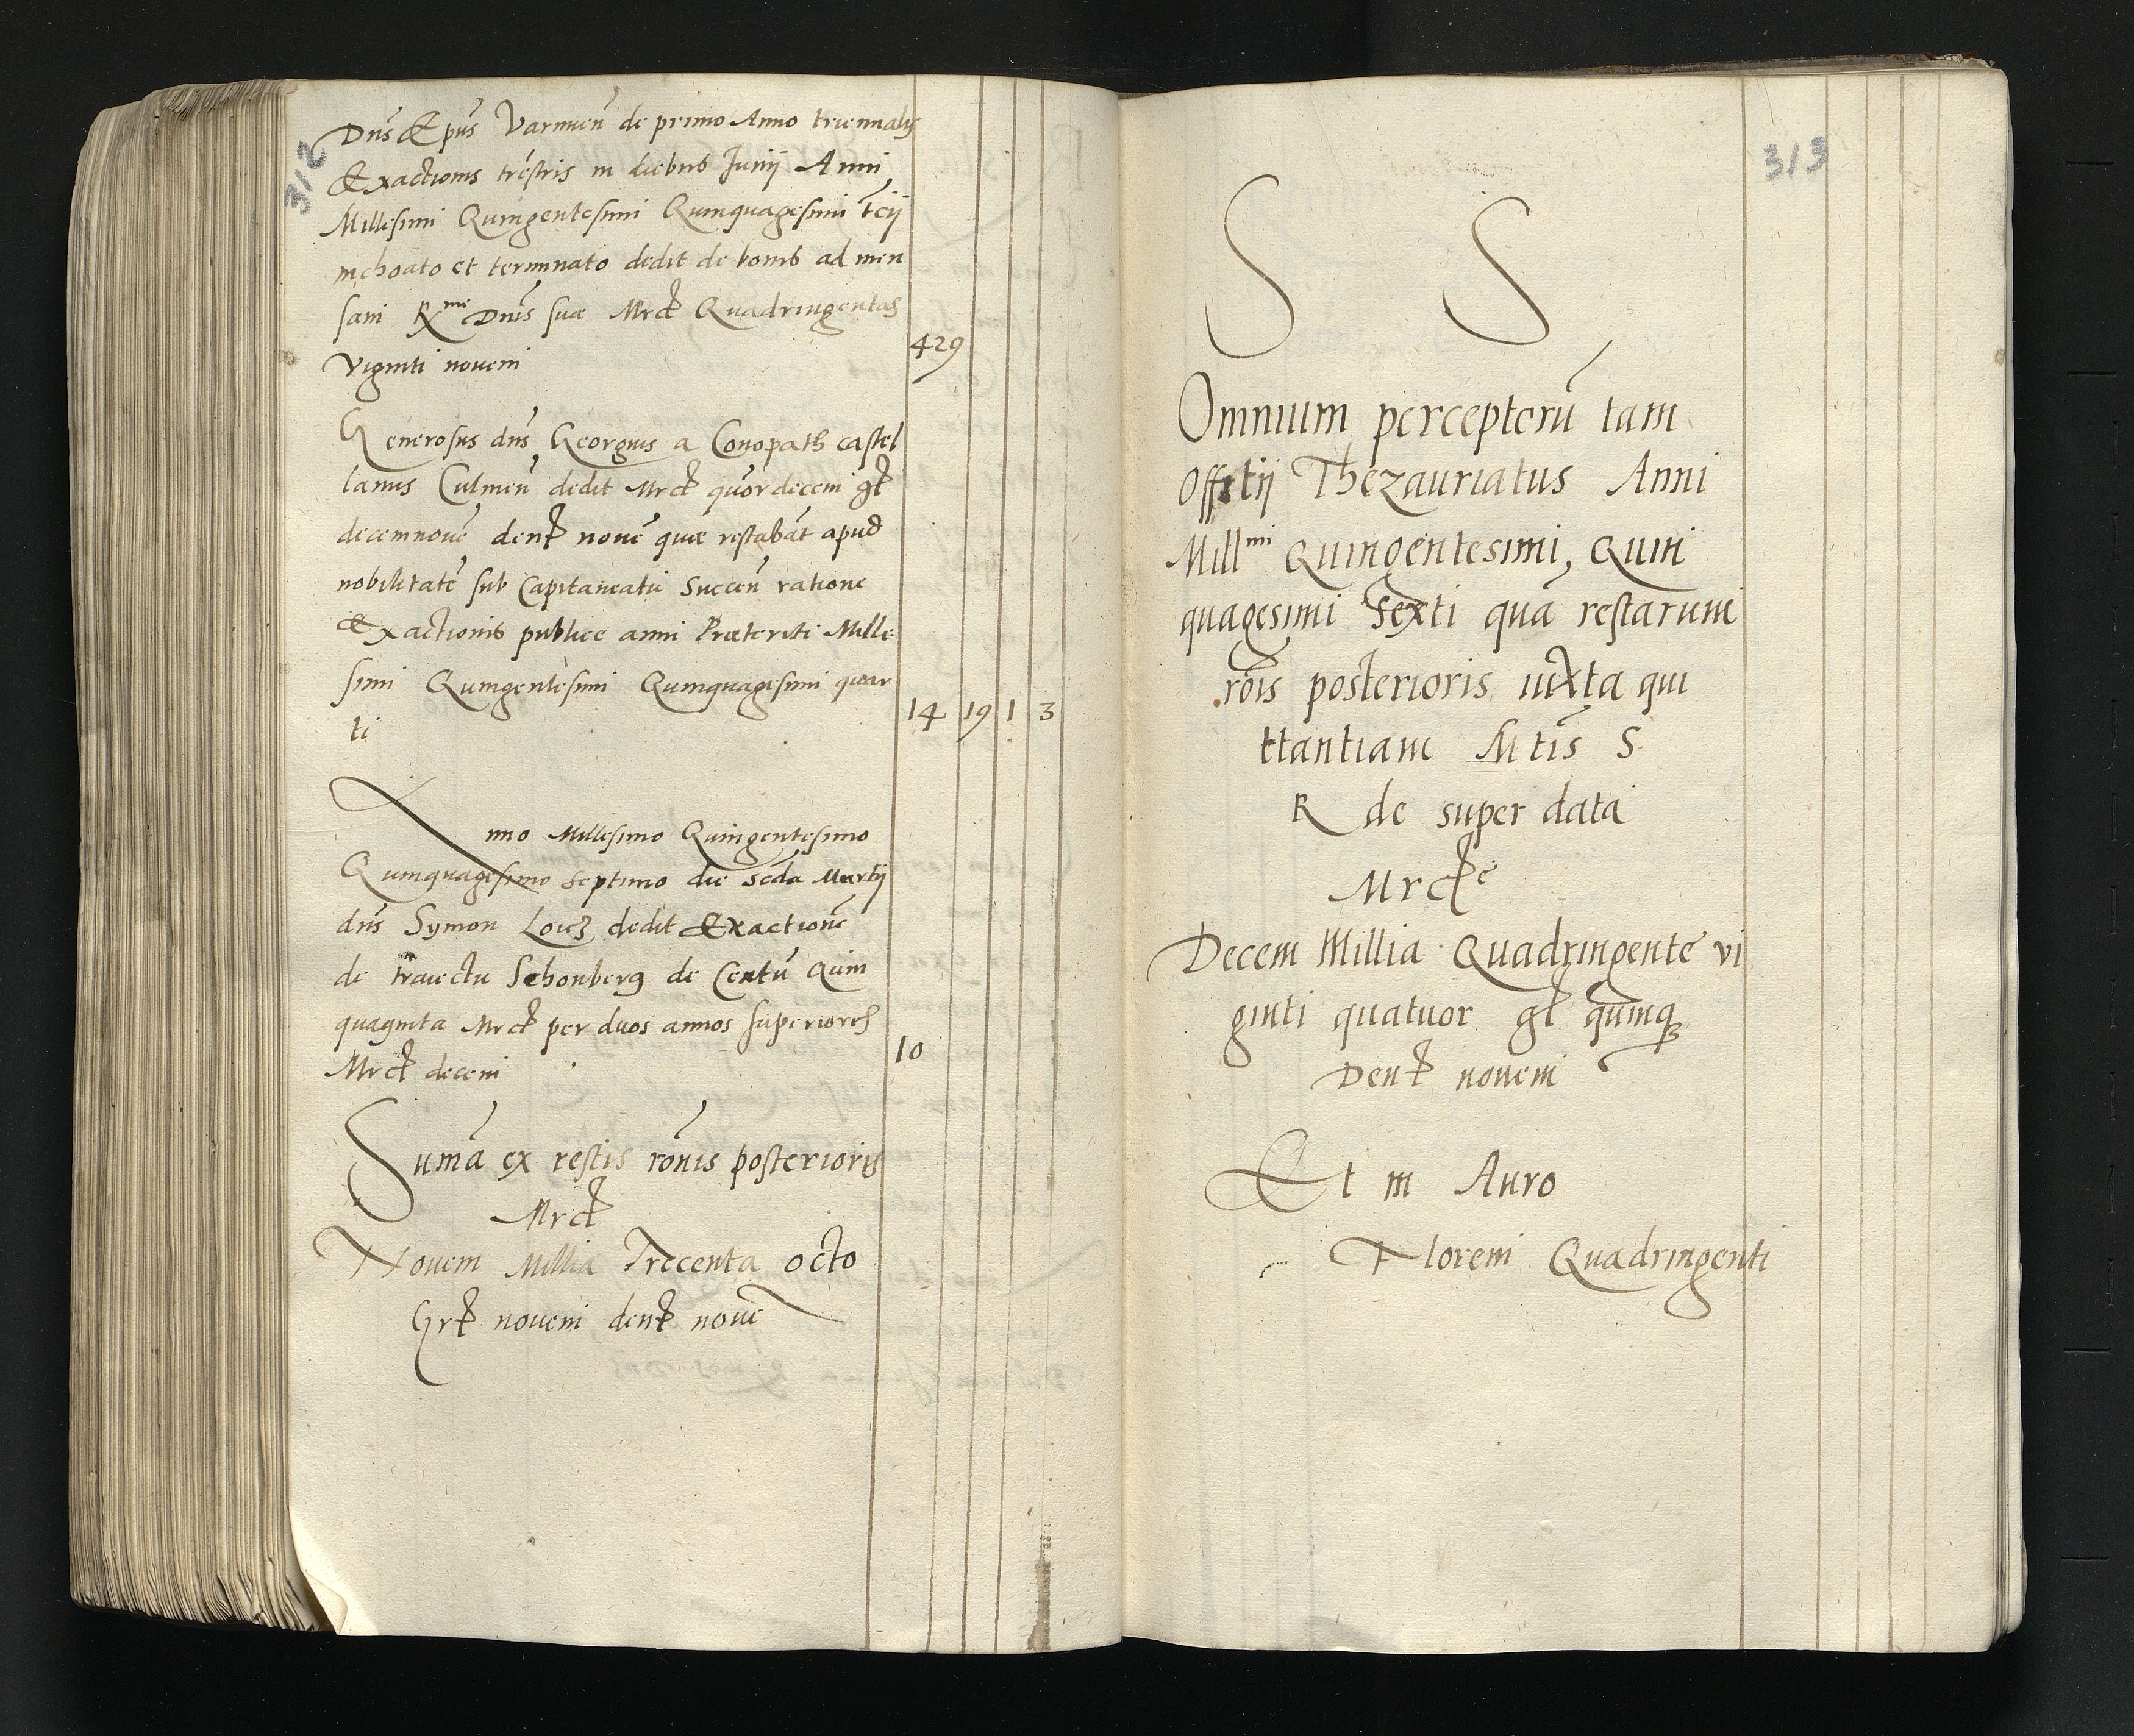 312
Dns Epus Varmien de primo Anno triennalis
Exactionis trestris in diebus Junij Anni
Millesimi Quingentesimi Quinquagesimi tcij
inchoato et terminato dedit de bonis ad men
sam Rme Dnis suæ Mrc Quadringentas
Viginti novem 429
Generosus dns Georgius a Conopath castel
lanus Culmen dedit Mrc quordecem gr
decemnove den nove quæ restabat apud
nobilitate sub Capitaneatu Succen ratione
Exactionis publice anni Præteriti Mille
simi Quingentesimi Quinquagesimi quar
ti 14 19 1 3
Anno Millesimo Quingentesimo
Quinquagesimo septimo die scda Martij
dns Symon Loicz dedit Exactione
de traiectu Schonberg de Centu Quin
quaginta Mrc per duos annos superiores
Mrc decem 10
Suma ex restis ronis posterioris
Mrc
Novem Millia Trecenta octo
Gr novem den nove
313
S S
Omnium perceptoru tam
Offitij Thezauriatus Anni
Millmi Quingentesimi, Quin
quagesimi Sexti qua restarum
rois posterioris iuxta qui
ttantiam Mtis S
R de super data
Mrce
Decem Millia Quadringente vi
ginti quatuor gr quinq
Den novem
Et in Auro
Floreni Quadringenti